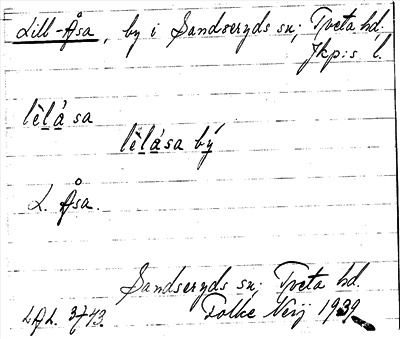 Lill-Åsa, by i Sandseryds sn; Tveta hd.
Jkp:s l.
lèlá sa
lèlása bý
L. Åsa.
Sandseryds sn; Tveta hd.
L.A.L. 3743. Folke Neij 1939